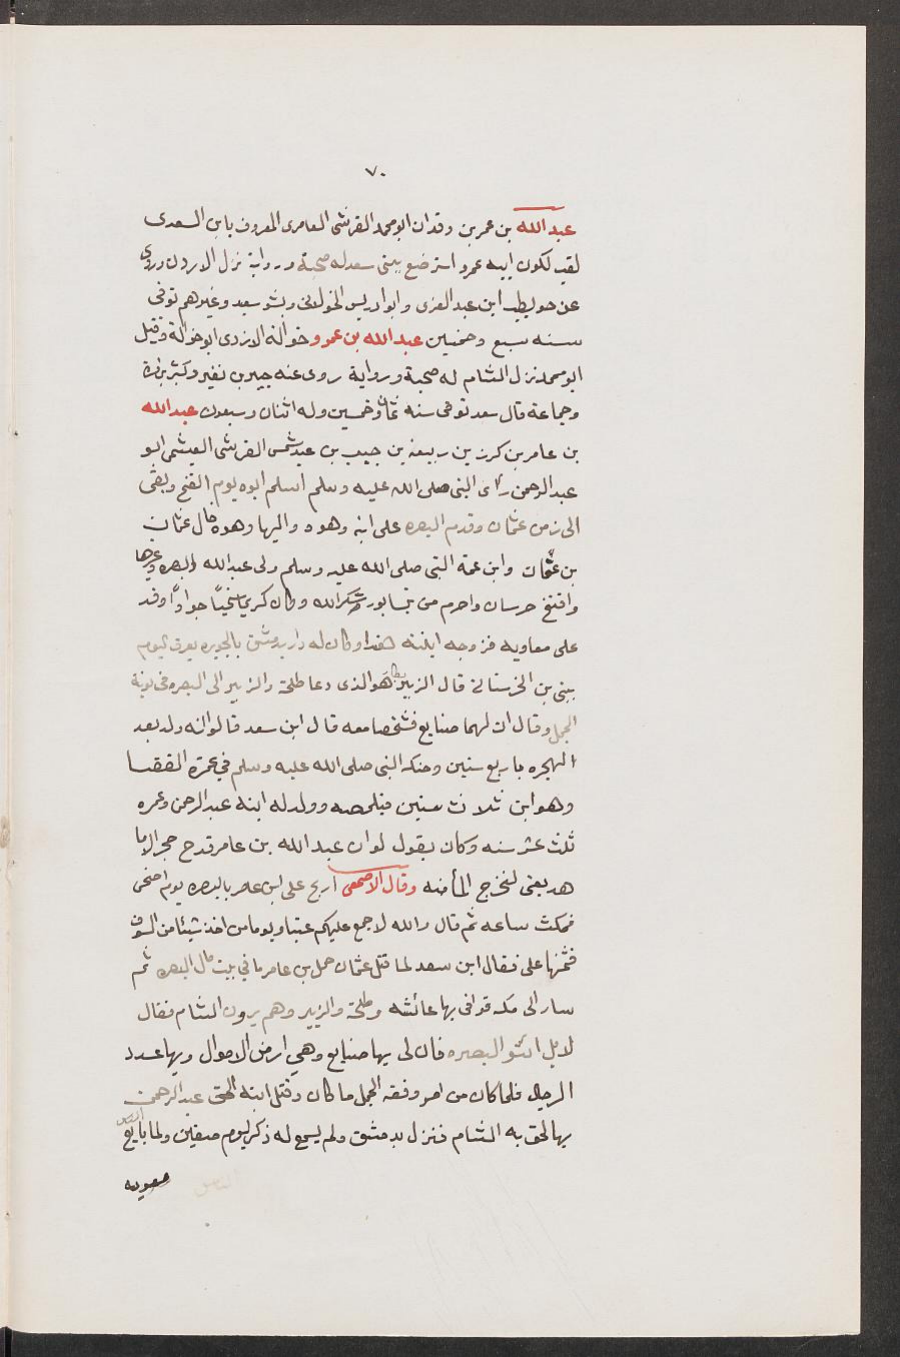 ٧٠
عبد الله بن عمر بن وقدان ابو محمد القرشى العامرى المعروف بابن السعدى
لقب لكون ابيه عمرو استرضع ببنى سعد له صحبة ورواية نزل الاردن وروى
عن حويطب ابن عبد العزى وابو ادريس الخولانى وبشر سعيد وغيرهم توفى
سنه سبع وخمسين عبد الله بن عمرو حوالة الازدى ابو حوالة وقيل
ابو محمد نزل الشام له صحبة ورواية روى عنه جبير بن نفير وكثير بن مرة
وجماعة قال سعد توفى سنه ثمان وخمسين وله اثنان وسبعون عبد الله
بن عامر بن كرز بن ربيعه بن حبيب بن عبد شمس القرشى العبشمى ابو
عبد الرحمن راى النبى صلى الله عليه وسلم اسلم ابوه يوم الفتح وبقى
الى زمن عثمان وقدم البصره على ابنه وهوه واليها وهوه خال عثمان
بن عفان وابن عمة النبى صلى الله عليه وسلم ولى عبد الله البصره وغيرها
وافتتح خرسان واحرم من نيسابور شكرالله وكان كريما سخيًا جوادًا وفد
على معاويه فزوجه ابنته هندا وكان له دار بدمشق بالجويره يعرف اليوم
ببنى بن الخرستانى قال الزبير بكار هو الذى دعا طلحة والزبير الى البصره فى نوبة
الجمل وقال ان لهما صنايع فشخصا معه قال ابن سعد قالوا انه ولد بعد
الهجره باربع سنين وحنكه النبى صلى الله عليه وسلم في عمرة القضا
وهو ابن ثلاث سنين فتلمصه وولد له ابنه عبد الرحمن وعمره
ثلث عشر سنه وكان يقول لو ان عبد الله بن عامر قدح حجر الاما
هه يعنى لخرج الماء منه وقال الاصمعى ارتج على ابن عامر بالبصره يوم اضحى
فمكث ساعه ثم قال والله لا جمع عليكم عتبا ويوما من اخذ شيئا من السوق
فثمنها على فقال ابن سعد لما قتل عثمان حمل بن عامر ما في بيت مال البصره ثم
سار الى مكه فوافى بها عائشه وطلحة والزبير وهم يرون الشام فقال
لا بل ائتو البصره فان لى بها صنايع وهي ارض الاموال وبها عدد
الرجال فلما كان من امر وقعه الجمل ما كان وقتل ابنه عبد الرحمن
بها لحق به الشام فنزل بدمشق ولم يسمع له ذكر ليوم صفين ولما بايع الناس
معويه